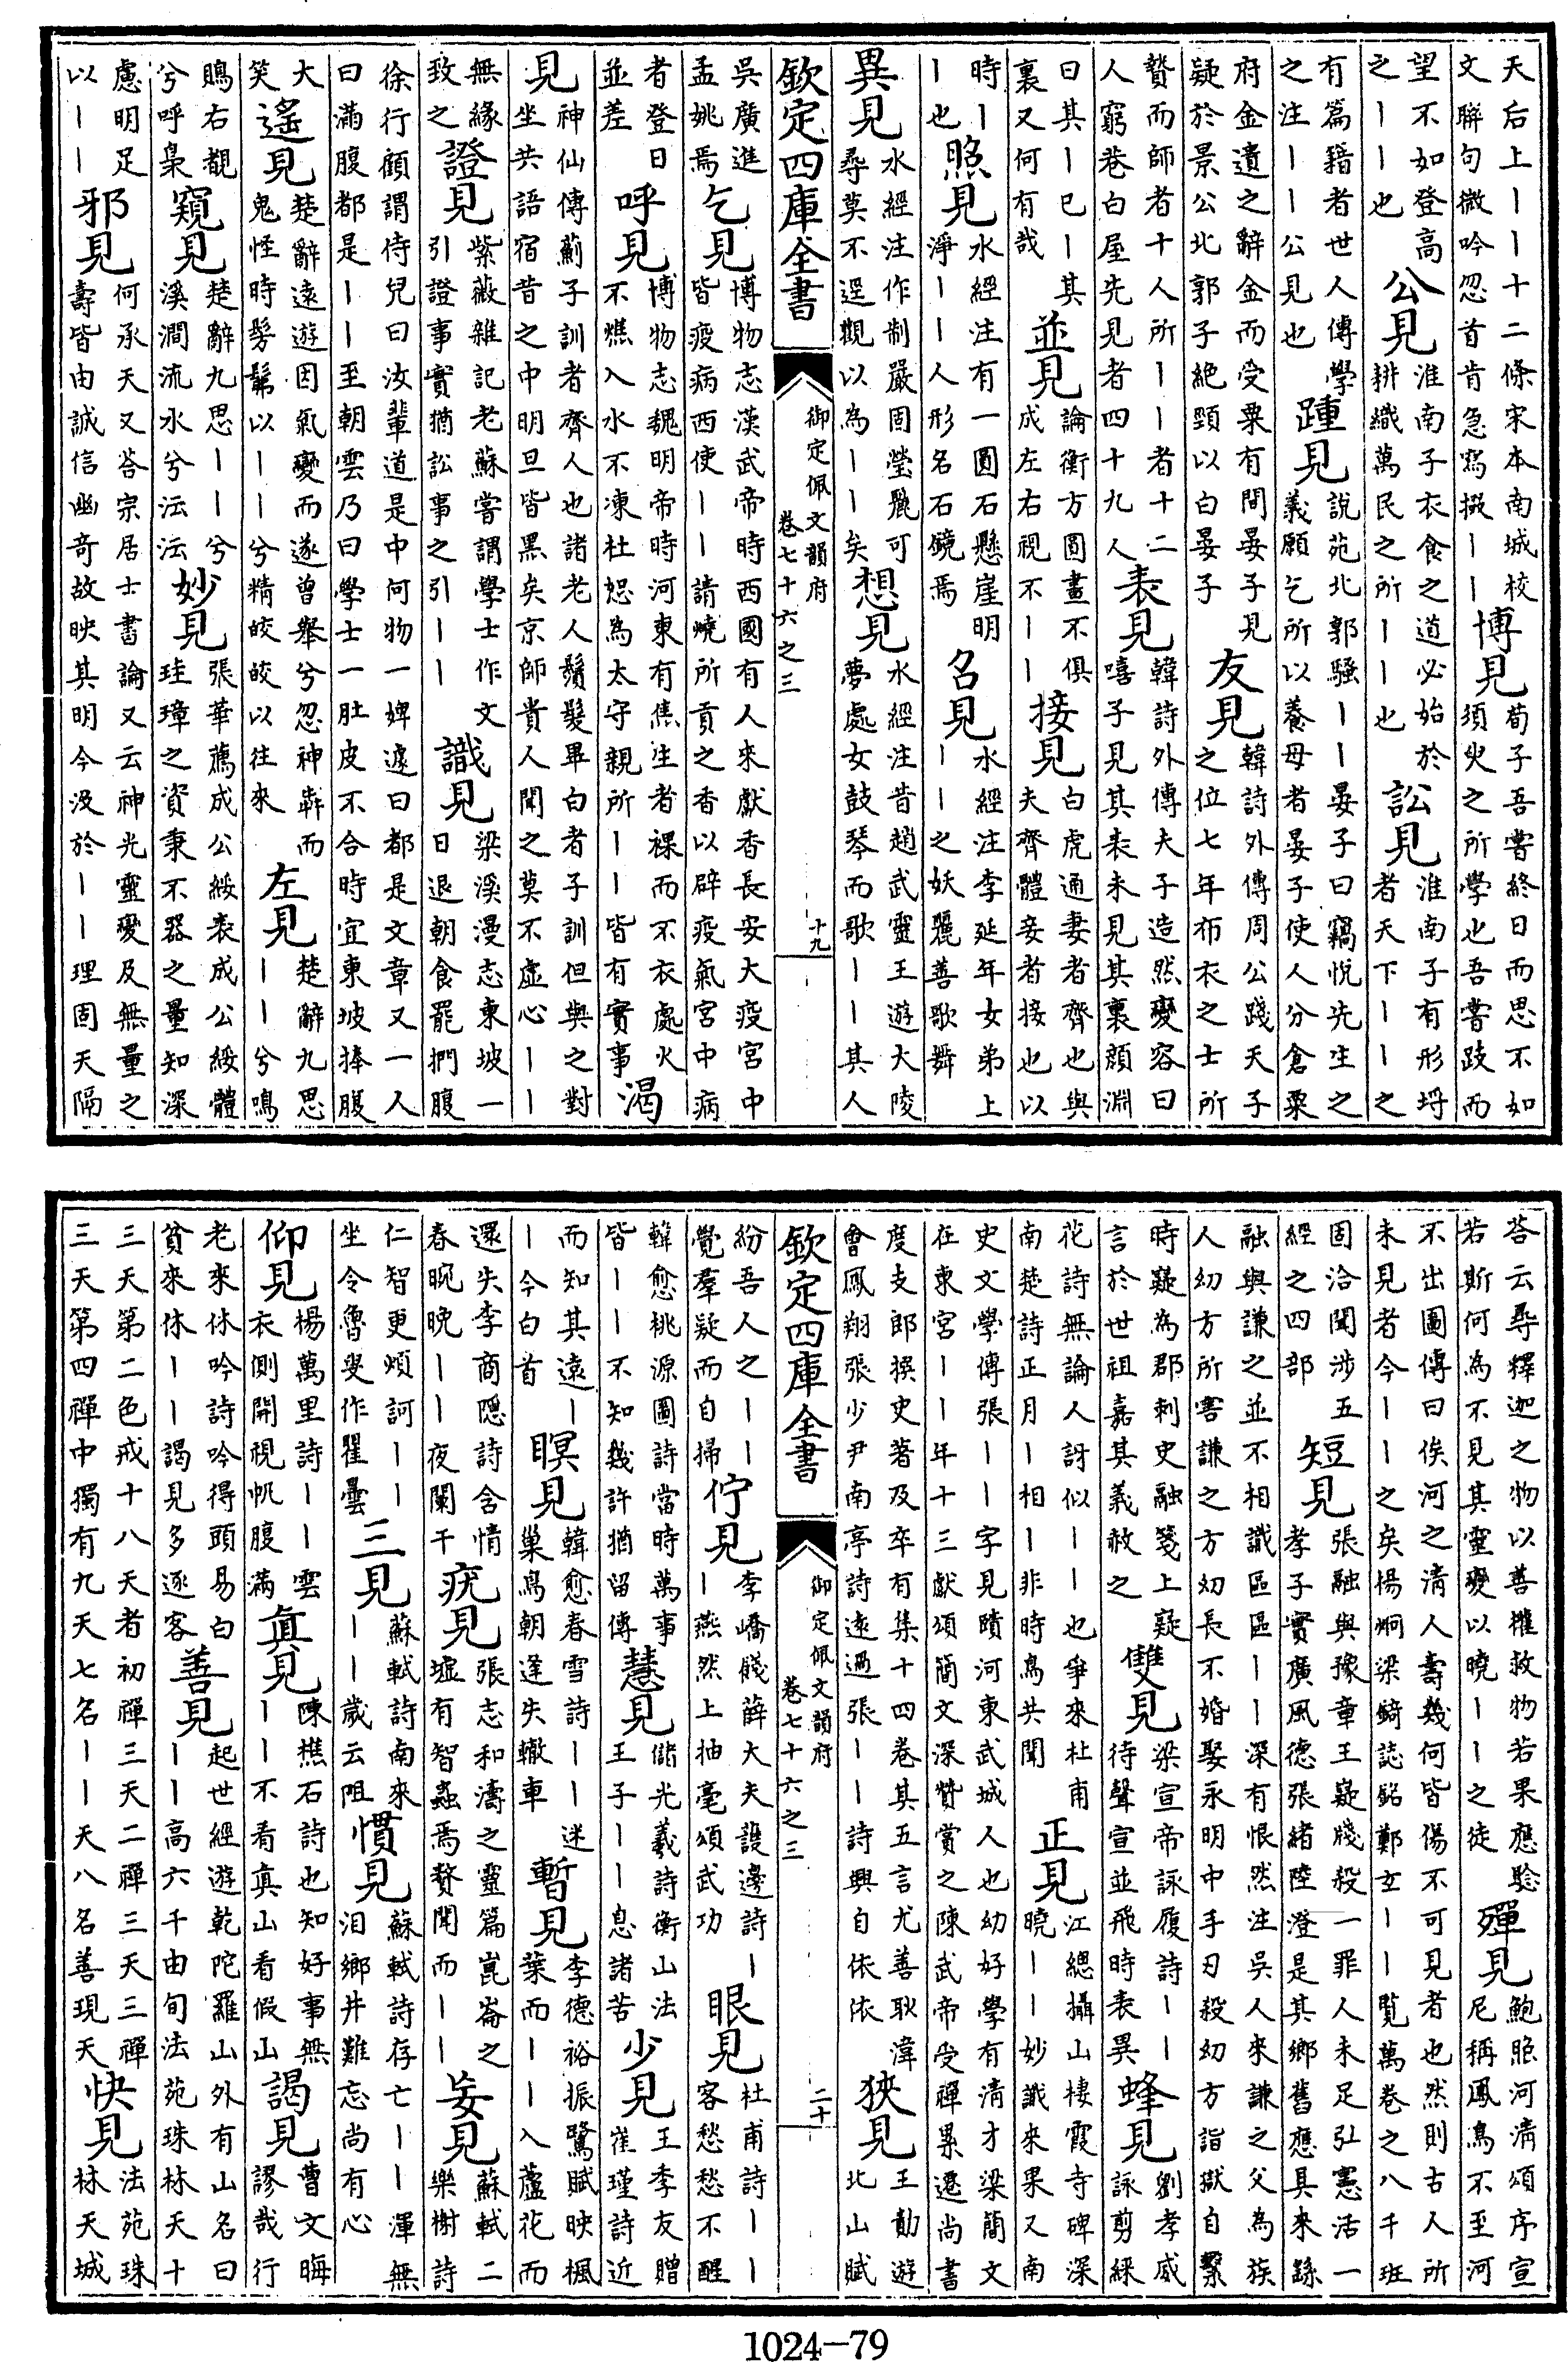 天后上｜｜十二條宋本南城校文聨句微吟忽首肯急寫撥｜｜博見荀子吾嘗終日而思不如須火之所學也吾嘗跂而
望不如登高之｜｜也公見淮南子衣食之道必始於耕織萬民之所｜｜也訟見淮南子有形埒者天下｜｜之
有篇籍者世人傳學之注｜｜公見也踵見說苑北郭騷｜｜晏子曰竊悦先生之義願乞所以養母者晏子使人分倉粟
府金遺之辭金而受粟有間晏子見疑於景公北郭子絶頸以白晏子友見韓詩外傳周公踐天子之位七年布衣之士所
贄而師者十人所｜｜者十二人窮巷白屋先見者四十九人表見韓詩外傳夫子造然變容曰嘻子見其表未見其裏顔淵
曰其｜已｜其裏又何有哉並見論衡方圓畫不俱成左右視不｜｜接見白虎通妻者齊也與夫齊體妾者接也以
時｜｜也照見水經注有一圓石懸崖明淨｜｜人形名石鏡焉召見水經注李延年女弟上｜｜之妖麗善歌舞
異見水經注作制嚴固瑩麗可尋莫不逕觀以為｜｜矣想見水經注昔趙武靈王遊大陵夢處女鼓琴而歌｜｜其人
欽定四庫全書 御定佩文韻府 卷七十六之三 十九
吳廣進孟姚焉乞見博物志漢武帝時西國有人來獻香長安大疫宫中皆疫病西使｜｜請燒所貢之香以辟疫氣宫中病
者登日並差呼見博物志魏明帝時河東有焦生者裸而不衣處火不燋入水不凍杜恕為太守親所｜｜皆有實事渴
見神仙傳薊子訓者齊人也諸老人鬚髮畢白者子訓但與之對坐共語宿昔之中明旦皆黑矣京師貴人聞之莫不虚心｜｜
無緣致之證見紫薇雜記老蘇嘗謂學士作文引證事實猶訟事之引｜｜識見梁溪漫志東坡一日退朝食罷捫腹
徐行顧謂侍兒曰汝輩道是中何物一婢遽曰都是文章又一人曰滿腹都是｜｜至朝雲乃曰學士一肚皮不合時宜東坡捧腹
大笑遙見楚辭遠遊因氣變而遂曾舉兮忽神奔而鬼怪時髣髴以｜｜兮精皎皎以往來左見楚辭九思｜｜兮鳴
鵙右覩兮呼梟窺見楚辭九思｜｜兮溪澗流水兮沄沄妙見張華薦成公綏表成公綏體珪璋之資秉不器之量知深
慮明足以｜｜邪見何承天又荅宗居士書論又云神光靈變及無量之壽皆由誠信幽奇故映其明今没於｜｜理固天隔
荅云尋釋迦之物以善權救物若果應驗若斯何為不見其靈變以曉｜｜之徒殫見鮑照河清頌序宣尼稱鳳鳥不至河
不出圖傳曰俟河之清人壽幾何皆傷不可見者也然則古人所未見者今｜｜之矣楊炯梁錡誌銘鄭玄｜｜覽萬卷之八千班
固洽聞涉五經之四部短見張融與豫章王嶷牋殺一罪人未足弘憲活一孝子實廣風德張緒陸澄是其鄉舊應具來繇
融與謙之並不相識區區｜｜深有恨然注吳人來謙之父為族人幼方所害謙之方幼長不婚娶永明中手刃殺幼方詣獄自繫
時嶷為郡刺史融箋上嶷言於世祖嘉其義赦之雙見梁宣帝詠履詩｜｜待聲宣並飛時表異蜂見劉孝威詠剪綵
花詩無論人訝似｜｜也爭來杜甫南楚詩正月｜相｜非時鳥共聞正見江總攝山棲霞寺碑深曉｜｜妙識來果又南
史文學傳張｜｜字見賾河東武城人也幼好學有清才梁簡文在東宫｜｜年十三獻頌簡文深贊賞之陳武帝受禪累遷尚書
度支郎撰史著及卒有集十四卷其五言尤善耿湋會鳳翔張少尹南亭詩遠過張｜｜詩興自依依狹見王勣遊北山賦
欽定四庫全書 御定佩文韻府 卷七十六之三 二十
紛吾人之｜｜覺羣疑而自掃佇見李嶠餞薛大夫護邊詩｜｜燕然上抽毫頌武功眼見杜甫詩｜｜客愁愁不醒
韓愈桃源圖詩當時萬事皆｜｜不知幾許猶留傳慧見儲光羲詩衡山法王子｜｜息諸苦少見王季友贈崔瑾詩近
而知其遠｜｜今白首瞑見韓愈春雪詩｜｜迷巢鳥朝逢失轍車暫見李德裕振鷺賦映楓葉而｜｜入蘆花而
還失李商隱詩含情春晼晚｜｜夜闌干疣見張志和濤之靈篇崑崙之墟有智蟲焉贅聞而｜｜妄見蘇軾二樂榭詩
仁智更煩訶｜｜坐令魯叟作瞿曇三見蘇軾詩南來｜｜歲云阻慣見蘇軾詩存亡｜｜渾無泪鄉井難忘尚有心
仰見楊萬里詩｜｜雲衣側開視帆腹滿真見陳樵石詩也知好事無｜｜不看真山看假山謁見曹文晦謬哉行
老來休吟詩吟得頭易白貧來休｜｜謁見多逐客善見起世經遊乾陀羅山外有山名曰｜｜高六千由旬法苑珠林天十
三天第二色戒十八天者初禪三天二禪三天三禪三天第四禪中獨有九天七名｜｜天八名善現天快見法苑珠林天城
1024-79